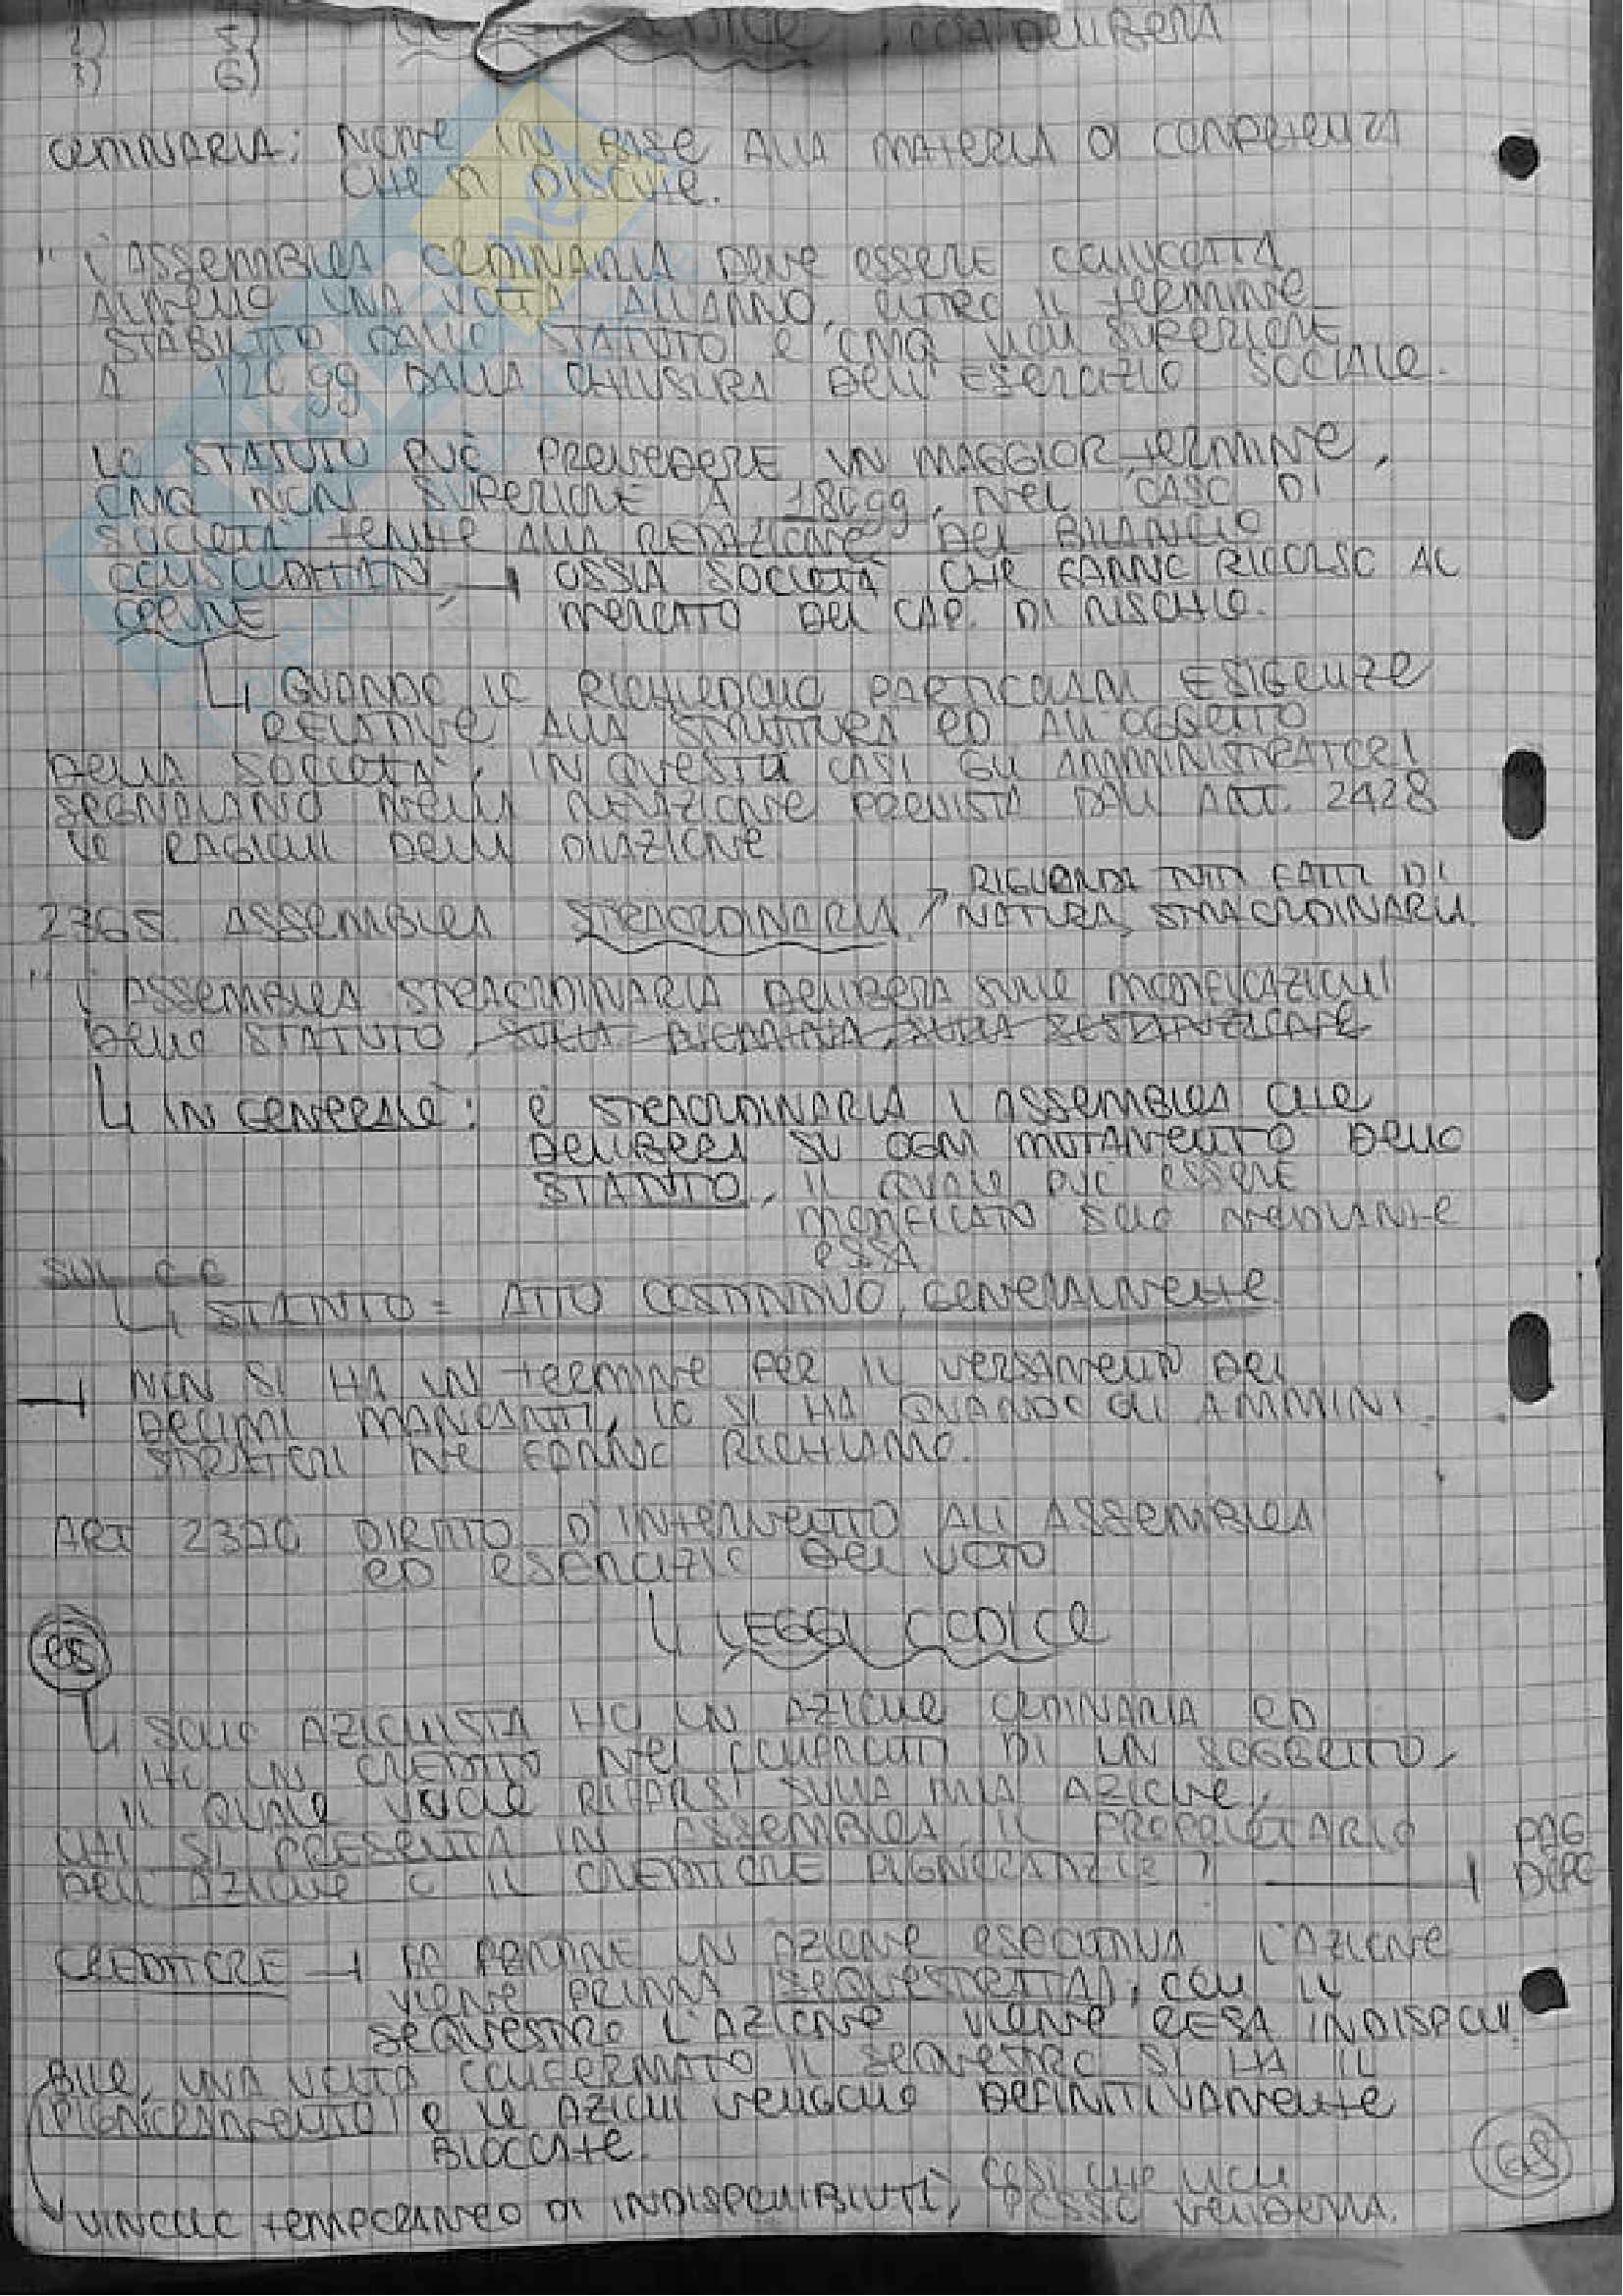 2) 5)
3) 6)
CODICE, COSA DELIBERA
ORDINARIA: NOME IN BASE ALLA MATERIA DI COMPETENZA
CHE SI DISCUTE.
" L'ASSEMBLEA ORDINARIA DEVE ESSERE CONVOCATA
ALMENO UNA VOLTA ALL'ANNO, ENTRO IL TERMINE
STABILITO DALLO STATUTO E CMQ NON SUPERIORE
A 120 gg DALLA CHIUSURA DELL'ESERCIZIO SOCIALE.
LO STATUTO PUÒ PREVEDERE UN MAGGIOR TERMINE,
CMQ NON SUPERIORE A 180 gg, NEL CASO DI
SOCIETÀ TENUTE ALLA REDAZIONE DEL BILANCIO
CONSOLIDATO → OSSIA SOCIETÀ CHE FANNO RICORSO AL
OPPURE MERCATO DEL CAP. DI RISCHIO.
↳ QUANDO LO RICHIEDONO PARTICOLARI ESIGENZE
RELATIVE ALLA STRUTTURA ED ALL'OGGETTO
DELLA SOCIETÀ, IN QUESTI CASI GLI AMMINISTRATORI
SEGNALANO NELLA RELAZIONE PREVISTA DALL'ART. 2428
LE RAGIONI DELLA DILAZIONE
RIGUARDA TUTTI FATTI DI
2365 ASSEMBLEA STRAORDINARIA ↗ NATURA STRAORDINARIA.
" L'ASSEMBLEA STRAORDINARIA DELIBERA SULLE MODIFICAZIONI
DELLO STATUTO, SULLA NOMINA, SULLA SOSTITUZIONE
↳ IN GENERALE: È STRAORDINARIA L'ASSEMBLEA CHE
DELIBERA SU OGNI MUTAMENTO DELLO
STATUTO, IL QUALE PUÒ ESSERE
MODIFICATO SOLO MEDIANTE
ESSA
SUL C C
↳ STATUTO = ATTO COSTITUTIVO, GENERALMENTE
→ NON SI HA UN TERMINE PER IL VERSAMENTO DEI
DECIMI MANCANTI, LO SI HA QUANDO GLI AMMINI
STRATORI NE FANNO RICHIAMO.
ART 2370 DIRITTO D'INTERVENTO ALL'ASSEMBLEA
ED ESERCIZIO DEL VOTO
↳ LEGGI CODICE
ES
↳ SONO AZIONISTA HO UN AZIONE ORDINARIA ED
HO UN CREDITO NEI CONFRONTI DI UN SOGGETTO,
IL QUALE VUOLE RIFARSI SULLA MIA AZIONE,
CHI SI PRESENTA IN ASSEMBLEA, IL PROPRIETARIO PAG
DELL'AZIONE O IL CREDITORE PIGNORATIZIO? → DOPO
CREDITORE → FA PARTIRE UN AZIONE ESECUTIVA L'AZIONE
VIENE PRIMA SEQUESTRATA, CON IL
SEQUESTRO L'AZIONE VIENE RESA INDISPONI
BILE, UNA VOLTA CONFERMATO IL SEQUESTRO SI HA IL
PIGNORAMENTO E LE AZIONI VENGONO DEFINITIVAMENTE
BLOCCATE.
VINCOLO TEMPORANEO DI INDISPONIBILITÀ, COSÌ CHE NON
POSSO VENDERLA.
68